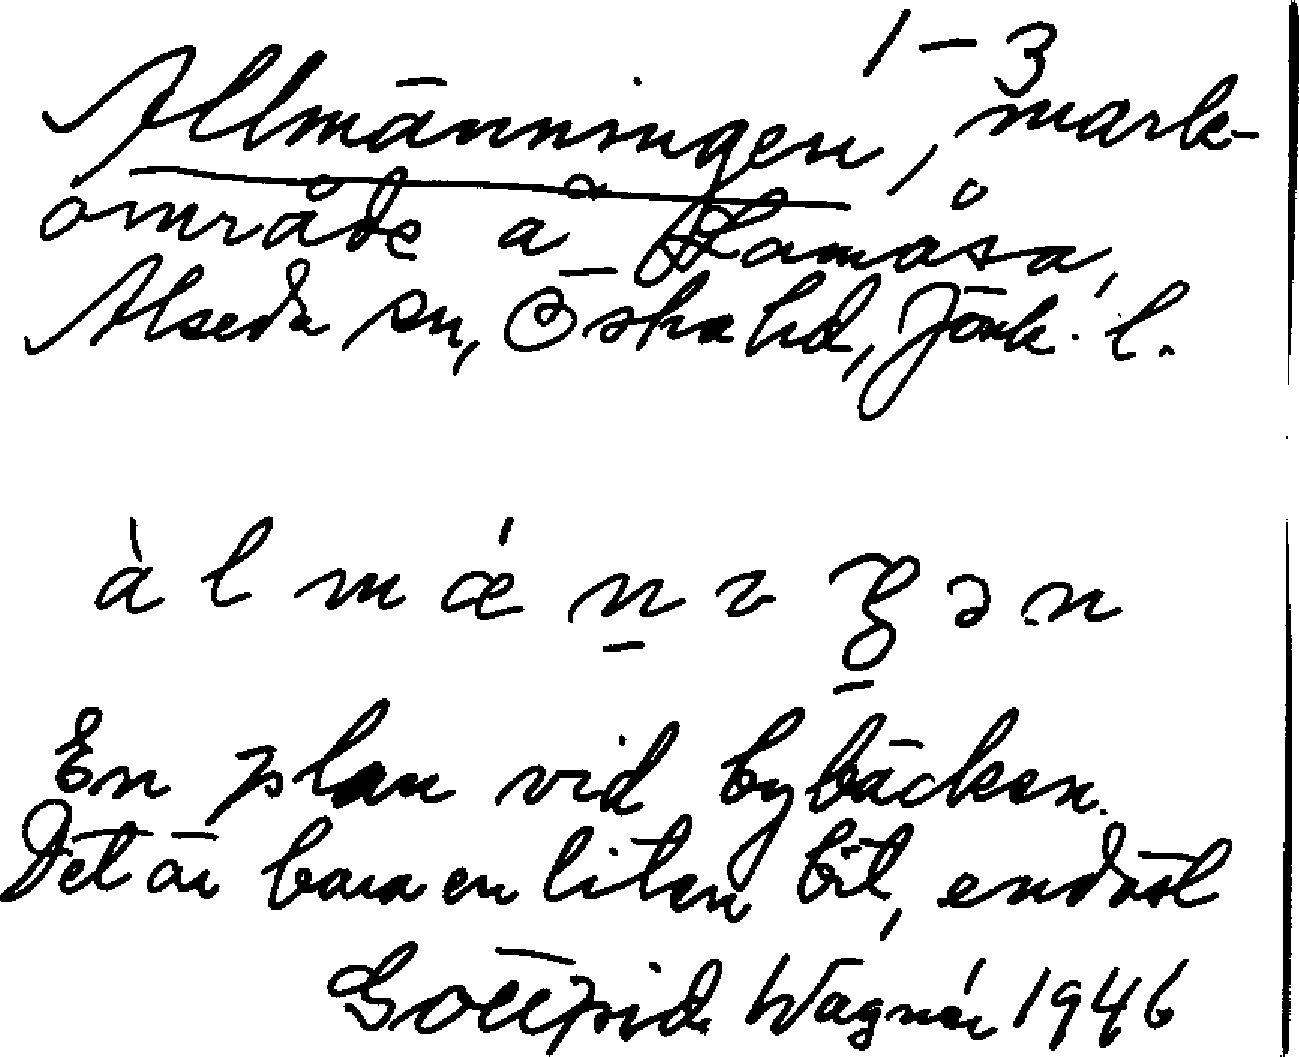 1-3
Allmänningen, mark-
område å Flamåsa,
Alseda sn, Östra hd, Jönk. l.
àlmǽnıŋən
En plan vid bybäcken.
Det är bara en liten bit,
Gottfrid Wagnér 1946